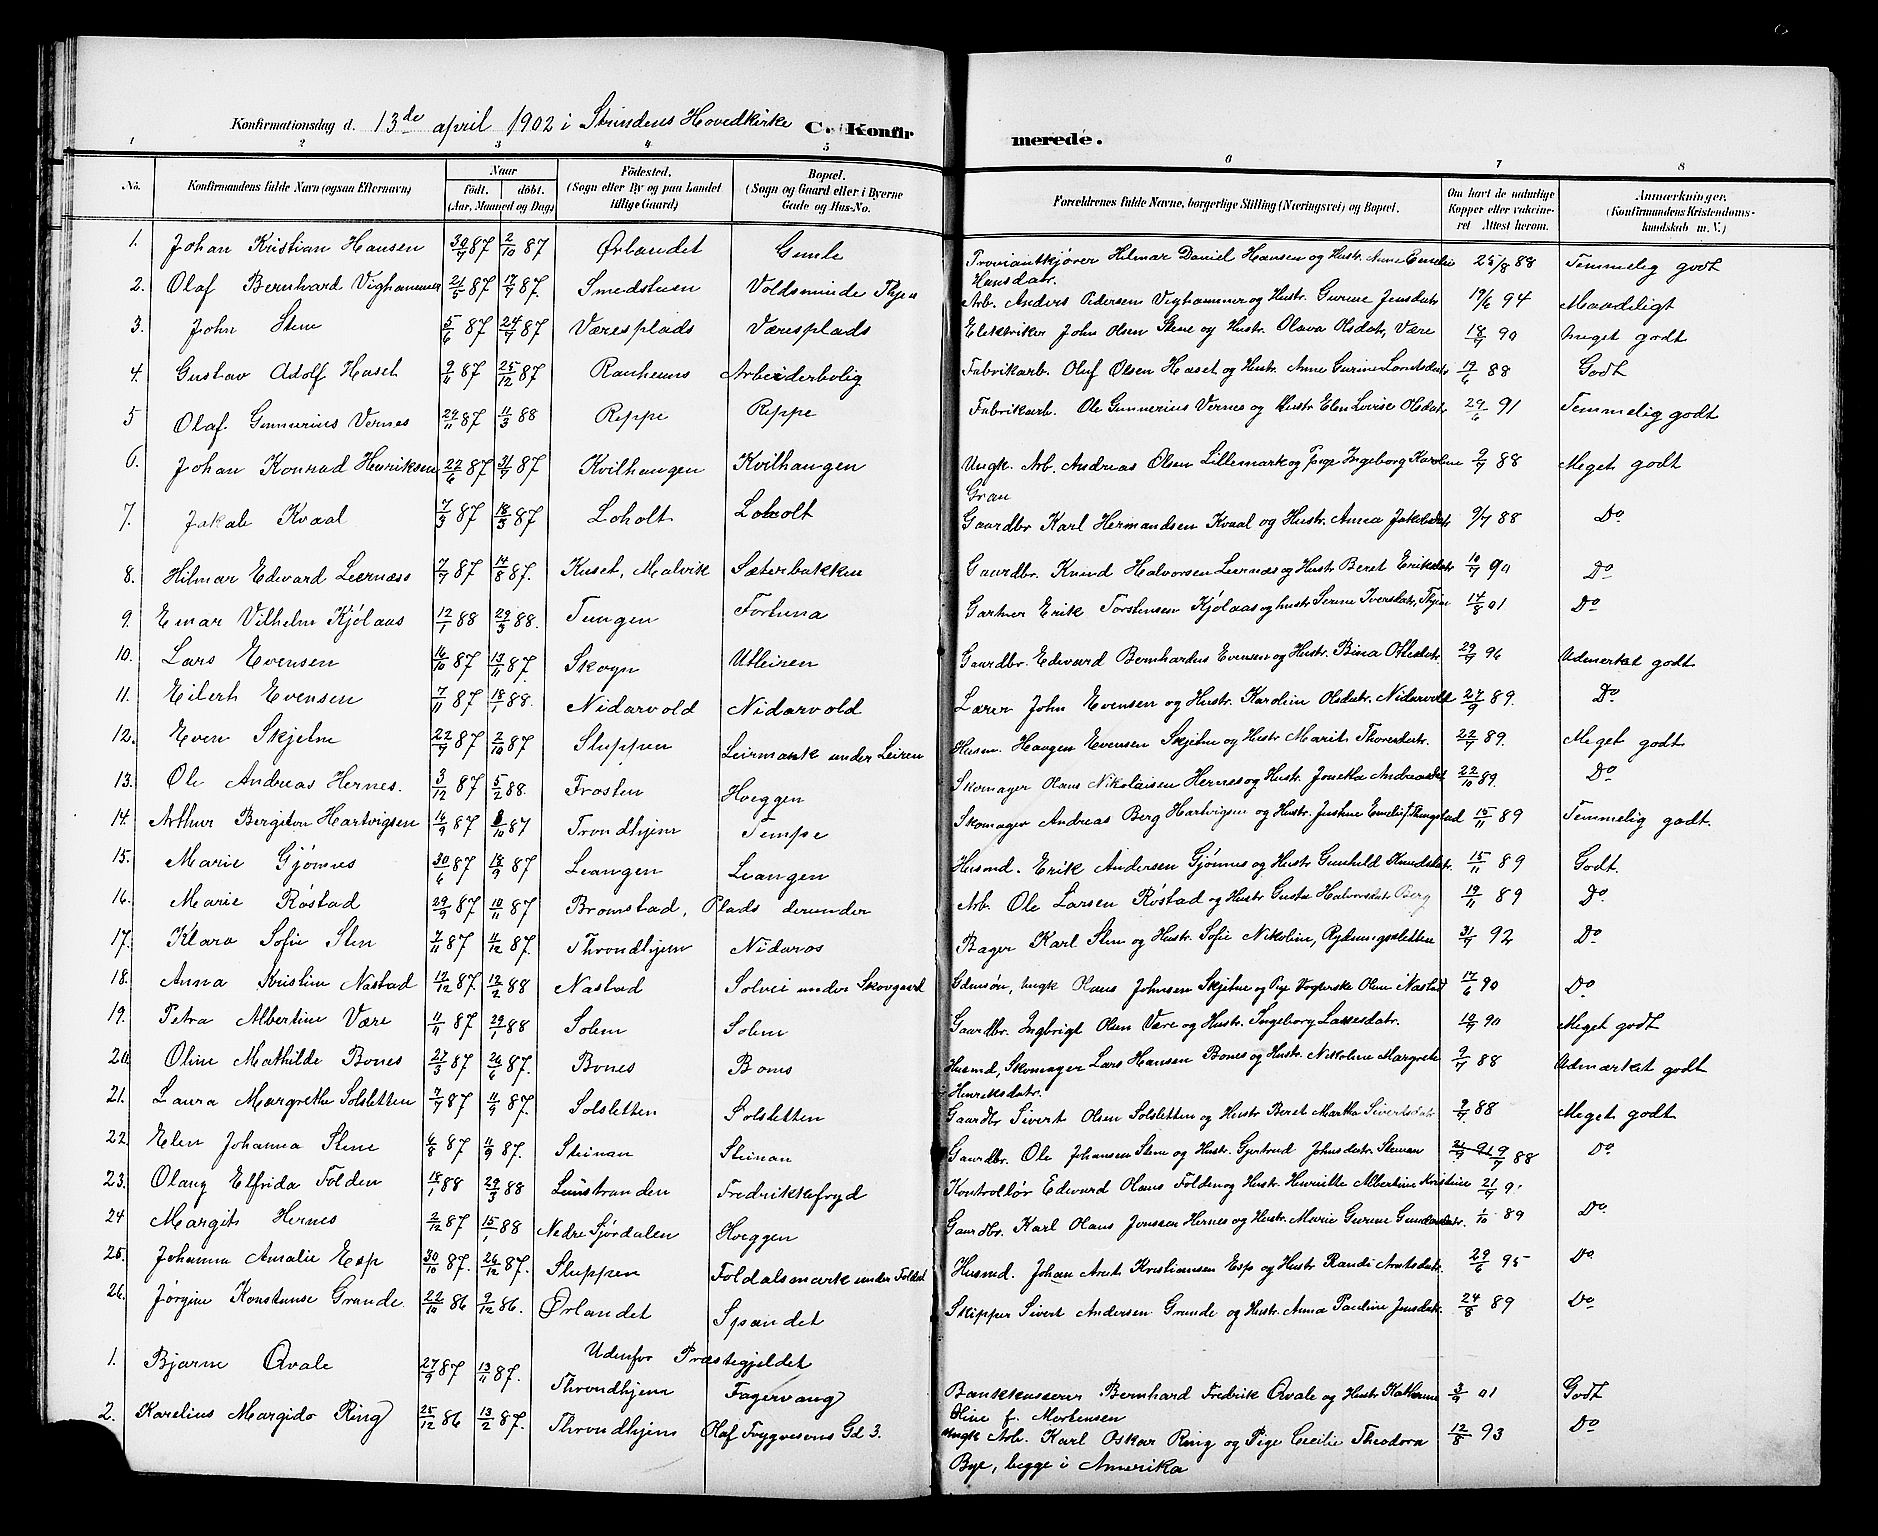 Konfirmationsdag d. 13de april 1902 i Strindens Hovedkirke C. Konfirmerede.
1 2 3 4 5 6 7 8
No. Konfirmandens fulde Navn (ogsaa Efternavn) Naar födt. döbt. (Aar, Maaned og Dag) Födested. (Sogn eller By og paa Landet tillige Gaard) Bopæl. (Sogn og Gaard eller i Byerne Gade og Hus-No. Forældrenes fulde Navne, borgerlige Stilling (Næringsvei) og Bopæl. Om havt de naturlige Kopper eller vakcineret Attest herom. Anmærkninger. (Konfirmandens Kristendomskundskab m. V.)
1. Johan Kristian Hansen 30/9 87 2/10 87 Ørlandet Gimle Proviantkjører Hilmar Daniel Hansen og Hustr. Anne Emelie 25/8 88 Temmelig godt
Hansdatr.
2. Olaf Bernhard Vighammer 21/5 87 17/7 87. Smedstuen Voldsminde Arb. Anders Pedersen Vighammer og Hustr. Gurine Jensdatr 19/6 94 Maadeligt
3. John Stene 5/6 87 24/7 87 Væresplads Væresplads Elektriker John Olsen Stene og Hustr. Olava Olsdatr, Være 18/7 90 Meget godt
4. Gustav Adolf Haset 9/11 87 25/12 87 Ranheims Arbeiderbolig Fabrikarb. Oluf Olsen Haset og Hustr. Anne Gurine 17/6 88 Godt
5 Olaf Gunnerius Vernes 24/11 87 11/3 88 Reppe Reppe Fabrikarb. Ole Gunnerius Vernes og Hustr Elen Lovise Olsdatr 29/6 91 Temmelig godt
6. Johan Konrad Henriksen 22/6 87 31/7 87 Kvilhaugen Kvilhaugen Ungk. Arb. Andreas Olsen Lillemark og Pige Ingeborg Karoline 9/7 88 Meget godt
Gran
7. Jakob Kvaal 7/3 87 18/3 87 Loholt Loholt Gaardbr Karl Hermandsen Kvaal og Hustr. Anna Jakobsdatr 9/7 88 Do
8. Hilmar Edvard Leernæss 7/7 87 14/8 87. Kuset, Malvik Sæterbakken Gaardbr. Knud Halvorsen Leernæs og Hustr Beret Eriksdatr 10/7 90 Do
9. Einar Vilhelm Kjølaas 12/1 88 29/3 88. Tungen Fortuna Gartner Erik Torstensen Kjølaas og hustr Serine Iversdatr, 14/8 01 Do
10. Lars Evensen 16/10 87 13/11 87. Skogn Utleiren Gaardbr. Edvard Bernhardus Evensen og Hustr. Bina Ottesdatr. 29/9 96 Udmerket godt
11. Eilert Evensen 7/11 87 18/1 88. Nidarvold Nidarvold Lærer John Evensen og Hustr. Karoline Olsdatr. Nidarvold 27/9 89. Do
12. Even Skjelne 22/9 87 2/10 87 Sluppen Leirmark under Leiren Husm. Haagen Evensen Skjelne og Hustr Marit Thoresdatr. 22/7 89. Meget godt
13. Ole Andreas Hernes. 3/12 87 5/2 88. Frosten Hoeggen Skomager Olaus Nikolaisen Hernes og Hustr. Jonetta Andreasdatr 22/10 89. Do
14. Arthur Bergiton Hartvigsen 16/9 87 8/10 87 Trondhjem Tempe Skomager Andreas Berg Hartvigsen og Hustr. Justine Emelie 15/11 89 Temmelig godt.
15. Marie Gjømnes 30/6 87 18/9 87 Leangen Leangen Husmd. Erik Andersen Gjømnes og Hustr. Gunhild Knudsdatr. 15/11 89 Godt.
16. Marie Røstad 29/9 87 10/11 87 Bromstad, Plads derunder Arb. Ole Larsen Røstad og Hustr. Gusta Halvorsdatr Berg 19/11 89 Do
17. Klara Sofie Sten 7/11 87 11/12 87. Throndhjem Nidaros Bager Karl Sten og Hustr. Sofie Nikoline, Rydningsletten 31/7 92 Do
18. Anna Kristine Nastad 12/12 87. 12/2 88 Nastad Solvei under Skovgaard Gdmsøn, Ungk Olaus Johnsen Skjelne og Pige Vogterske Oline Nastad 17/6 90 Do
19. Petra Albertine Være 11/11 87 29/1 88 Solem Solem Gaardbr. Ingbrigt Olsen Være og Hustr. Ingeborg Lassesdatr. 10/7 90 Meget godt
20. Oline Mathilde Bones 27/3 87 26/6 87. Bones Bones Husmd, Skomager Lars Hansen Bones og Hustr. Nikoline Margrete 9/7 88 Udmærket godt
Henriksdatr.
21. Laura Margrethe Solsletten 7/7 87 11/9 87. Solsletten Solsletten Gaardbr Sivert Olsen Solsletten og Hustr Beret Martha Sivertsdatr. 9/7. 88 Meget godt
22. Elen Johanna Stene 6/8 87 11/9 87. Steinan Steinan Gaardbr. Ole Johansen Stene og Hustr. Gjertrud Johnsdatr Steinan 9/7 88 Do
23. Olaug Elfrida Folden 18/1 88 29/3 88 Fredrikkefryd Kontrollør Edvard Olaus Folden og Hustr Henriette Albertine Kristine 21/9 9
24 Margit Hernes 2/12 87. 15/1 88 Nedre Sjørdalen Hoeggen Gaardbr. Karl Olaus Jonssen Hernes og Hustr. Marie Gurine 1/10 89 Do.
25. Johanna Amalie Esp 30/10 87. 26/12 87. Sluppen Foldalsmark under Foldal Husmd. Johan Arnt Kristiansen Esp og Hustr Randi Arntsdatr. 29/6 95 Do
26. Jørgine Konstanse Grande. 22/10 86 9/12 86. Ørlandet Spandet Skipper Sivert Andersen Grande og Hustr. Anna Pauline Jensdatr. 24/8 89 Do
Udenfor Præstegjeldet
1. Bjarne Qvale 27/9 87 13/11 87. Throndhjem Fagervang Bankkasserer Bernhard Fredrik Qvale og Hustr Kathrine 3/9 01 Godt
Oline f. Mortensen
2. Karelius Margido Ring 25/12 86 13/2 87. Throndhjem Olaf Trygvesøns Gd 3. Ungk Arb. Karl Oskar Ring og Pige Cecilie Theodora 12/8 93 Do
Bye, begge i Amerika